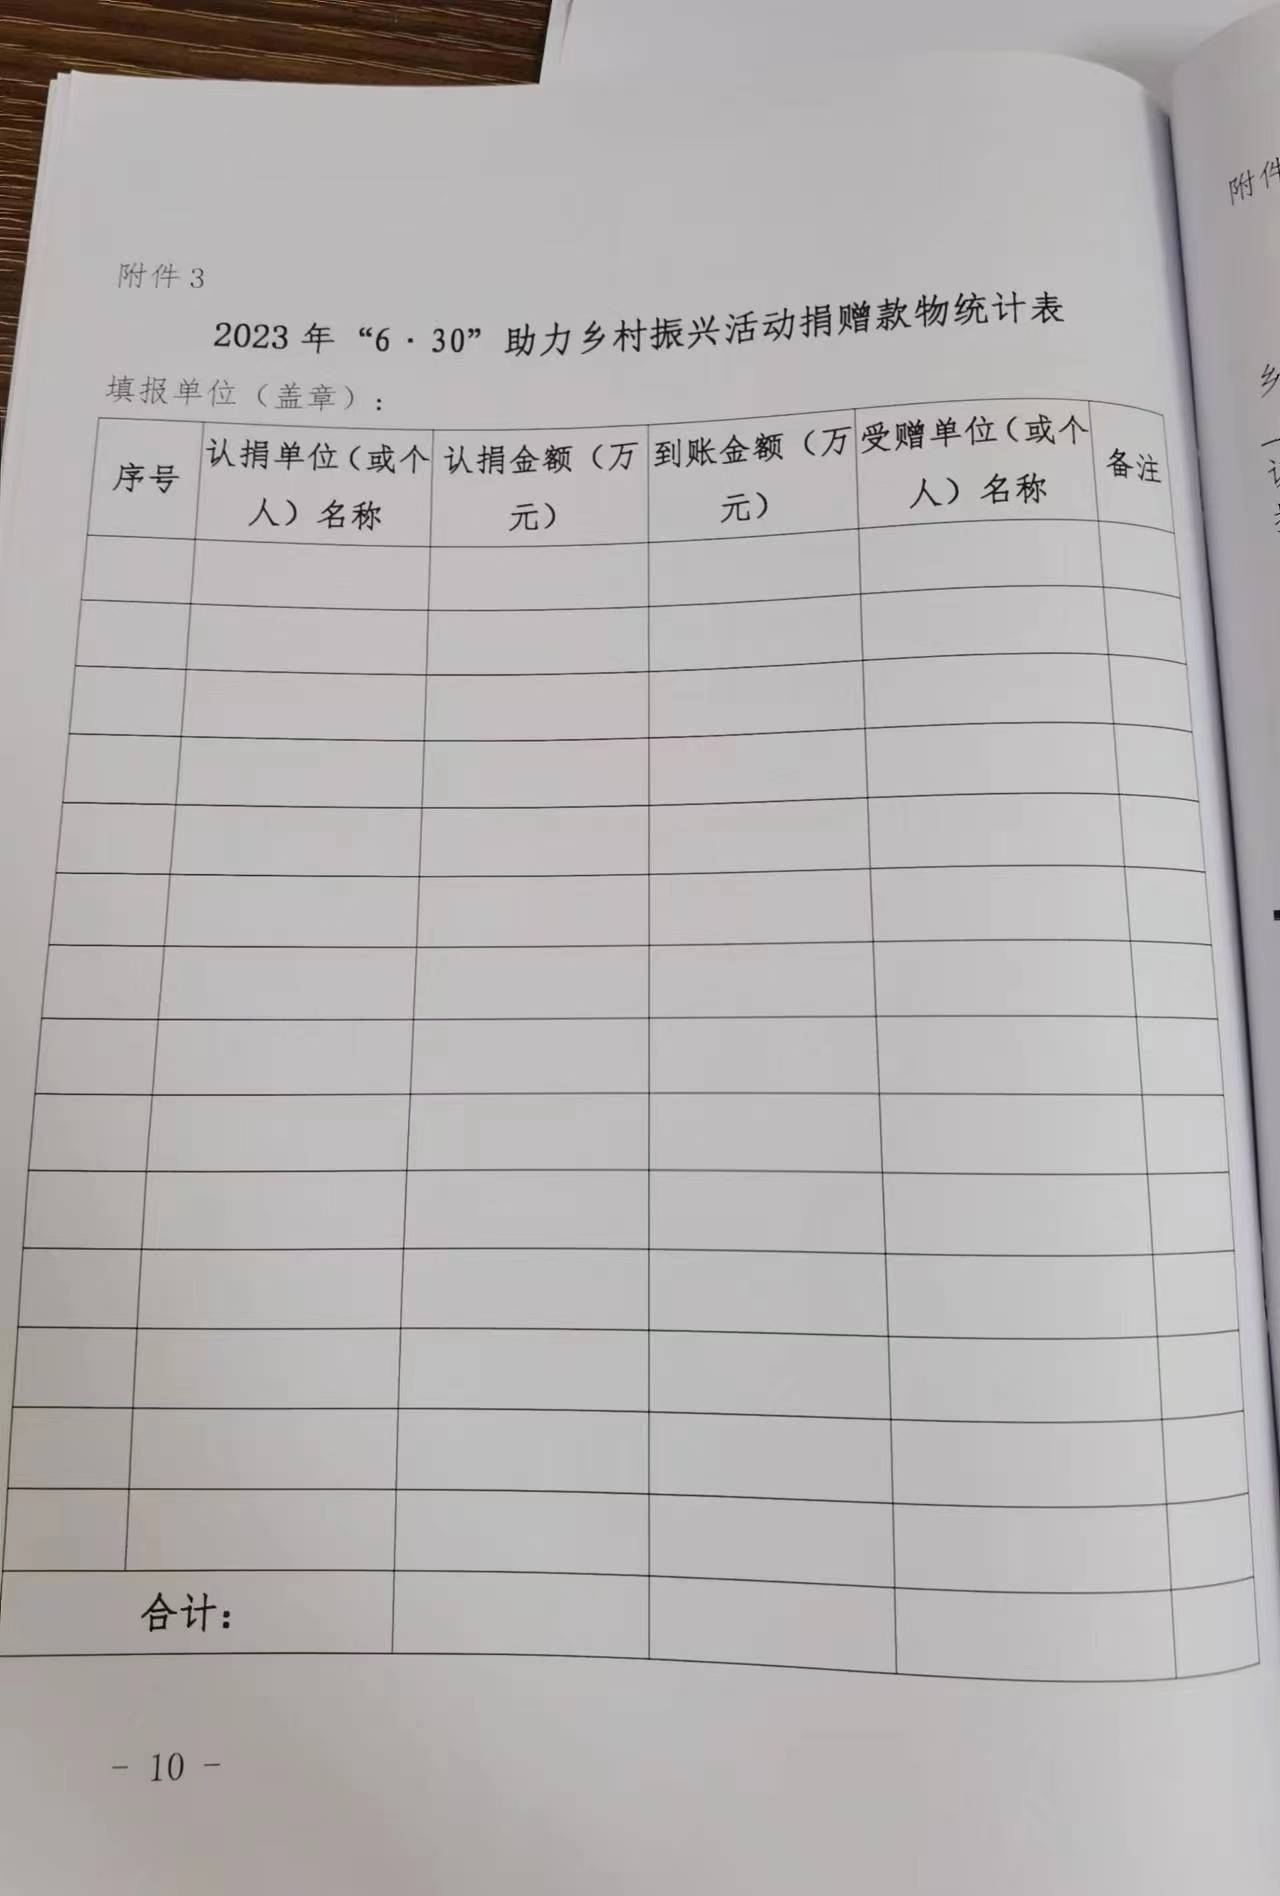 附件3
2023年“6·30”助力乡村振兴活动捐赠款物统计表
填报单位（盖章）:
序号 认捐单位（或个人）名称 认捐金额（万元） 到账金额（万元） 受赠单位（或个人）名称 备注
合计:
- 10 -
附件
乡